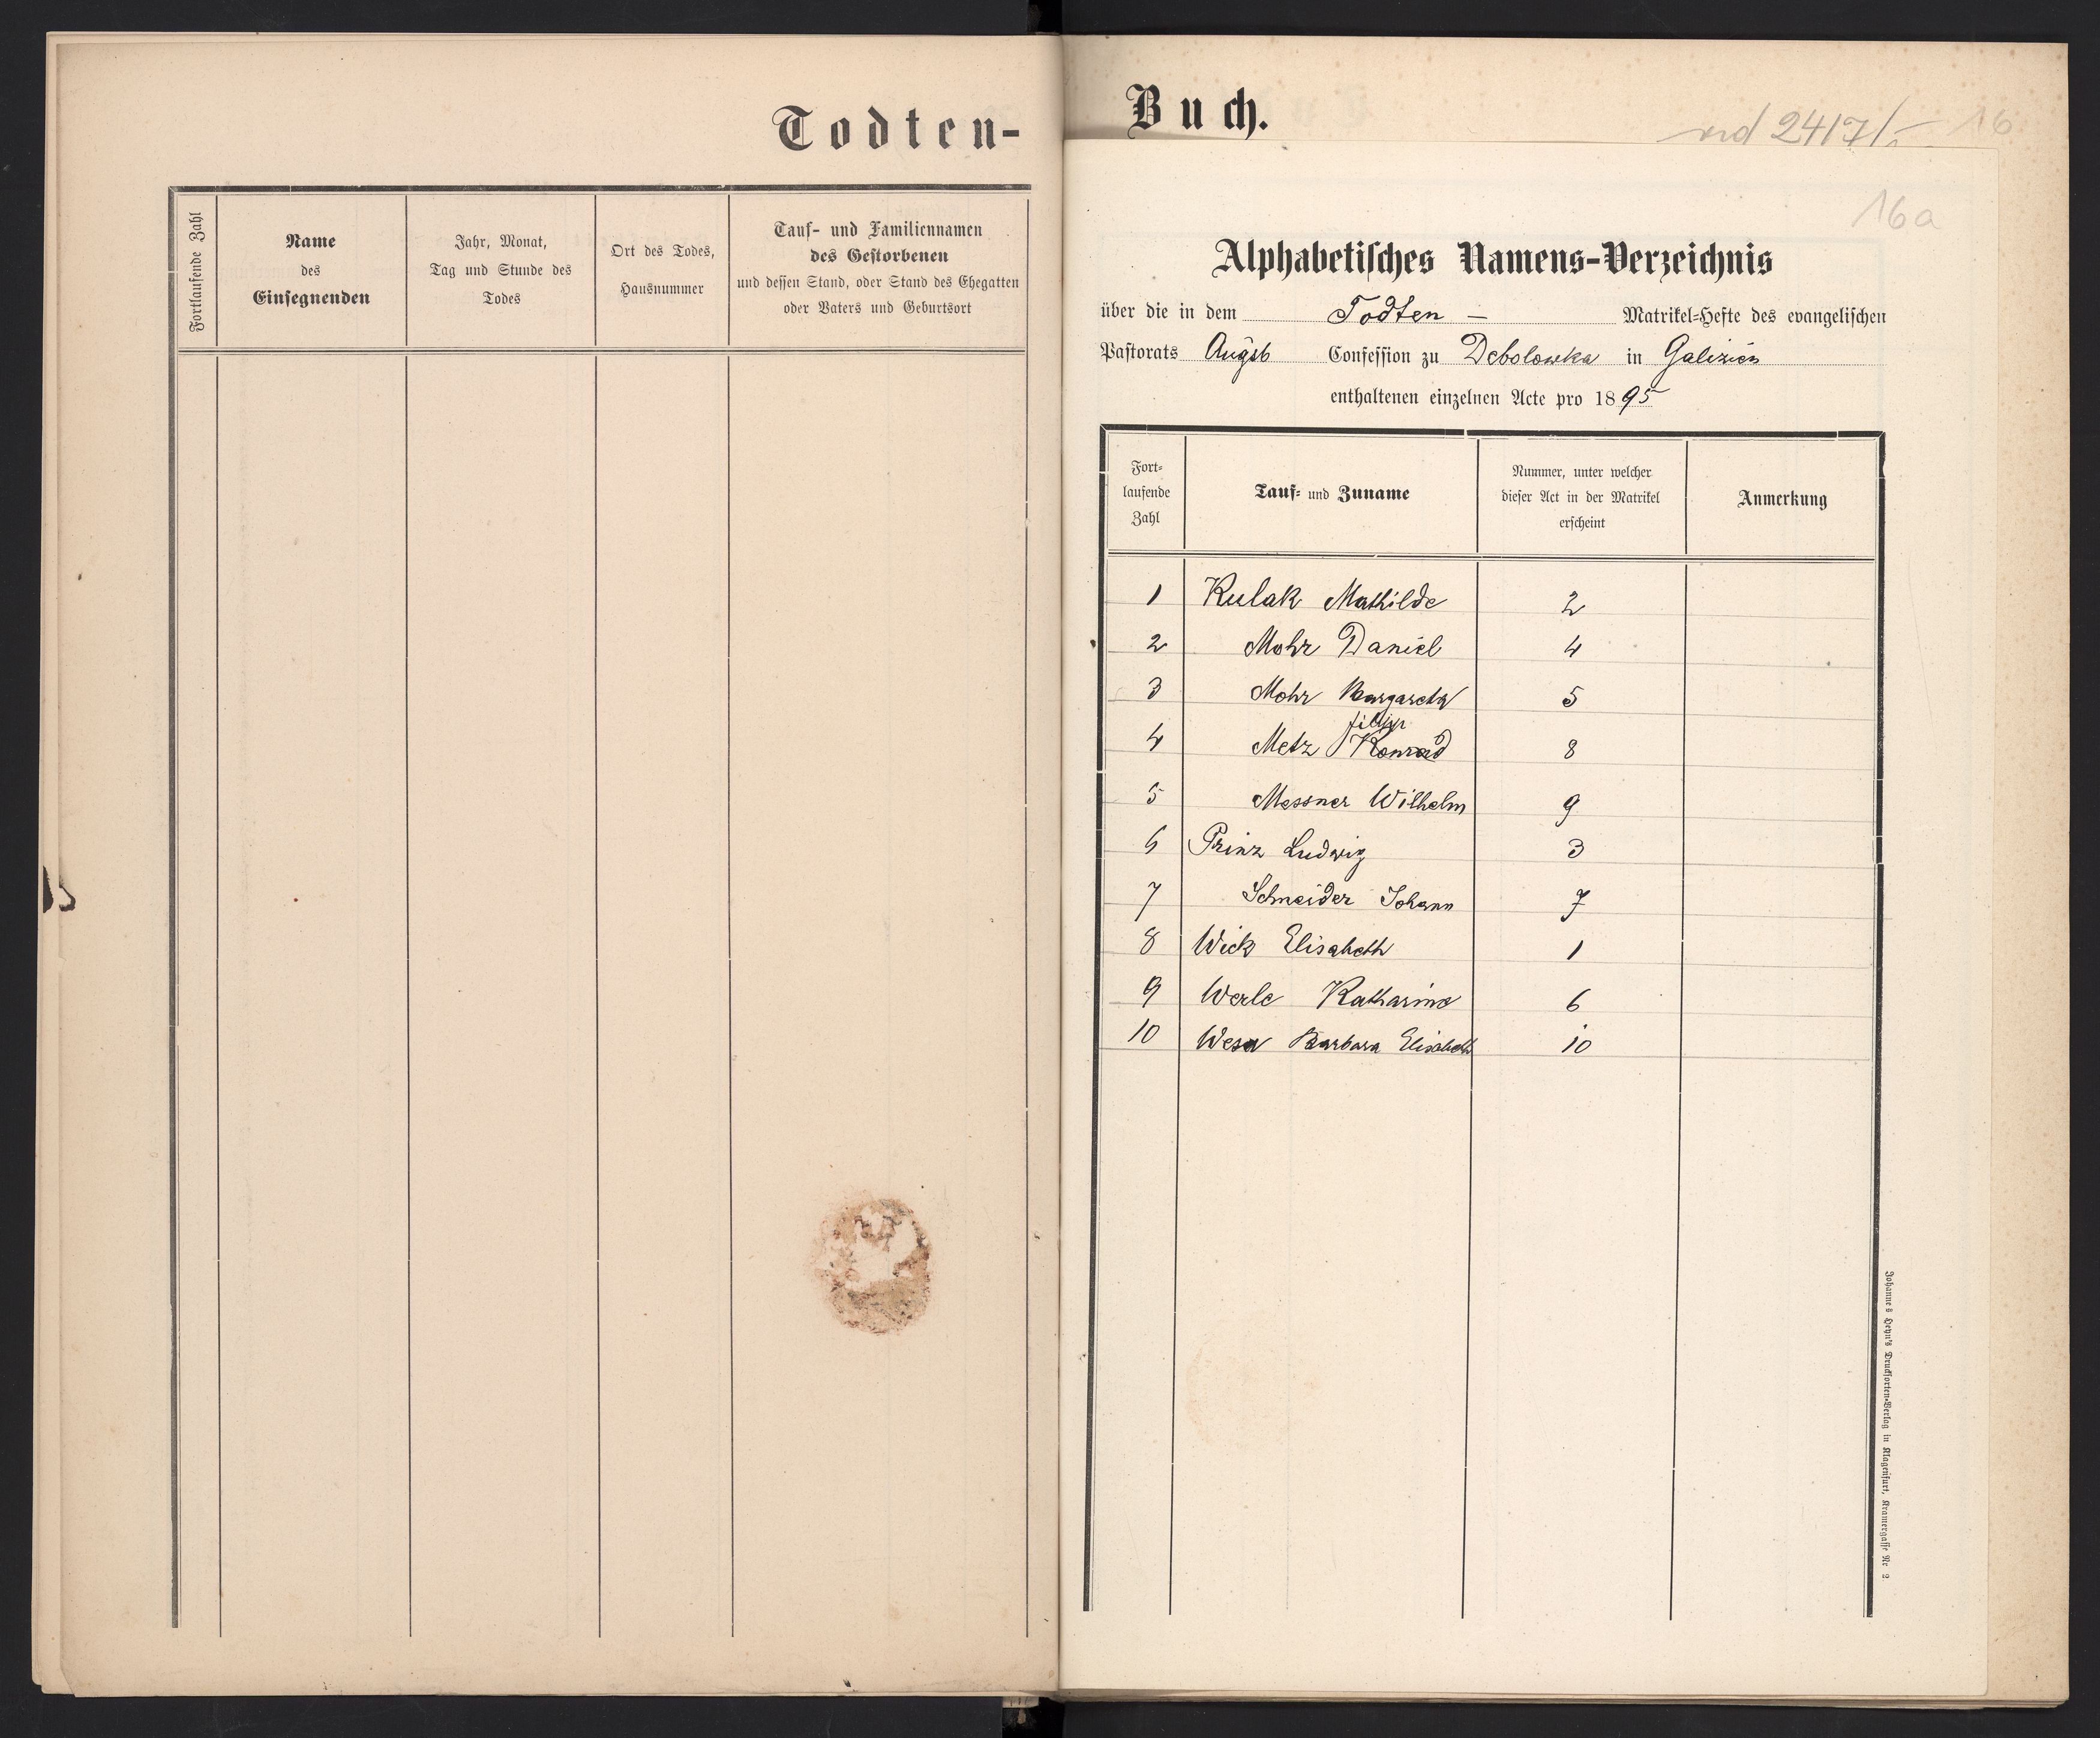 Todten-
Fortlaufende Zahl
Name
des
Einsegnenden
Jahr, Monat,
Tag und Stunde des
Todes
Ort des Todes,
Hausnummer
Tauf- und Familiennamen
des Gestorbenen
und dessen Stand, oder Stand des Ehegatten
oder Vaters und Geburtsort
Buch.
2417/
16
16a
Alphabetisches Namens-Verzeichnis
über die in dem Todten — Matrikel-Hefte des evangelischen
Pastorats Augsb Confession zu Debolowka in Galizien
enthaltenen einzelnen Acte pro 1895
Fort-
laufende
Zahl
Tauf- und Zuname
Nummer, unter welcher
dieser Act in der Matrikel
erscheint
Anmerkung
1 Kulak Mathilde 2
2 Mohr Daniel 4
3 Mohr Margaretha 5
4 Metz Konrad 8
5 Messner Wilhelm 9
6 Prinz Ludwig 3
7 Schneider Johann 7
8 Wick Elisabeth 1
9 Werle Katharina 6
10 Barbara Elisabeth 10
Johannes Heyn's Drucksorten-Verlag in Klagenfurt, Kramergasse Nr 2